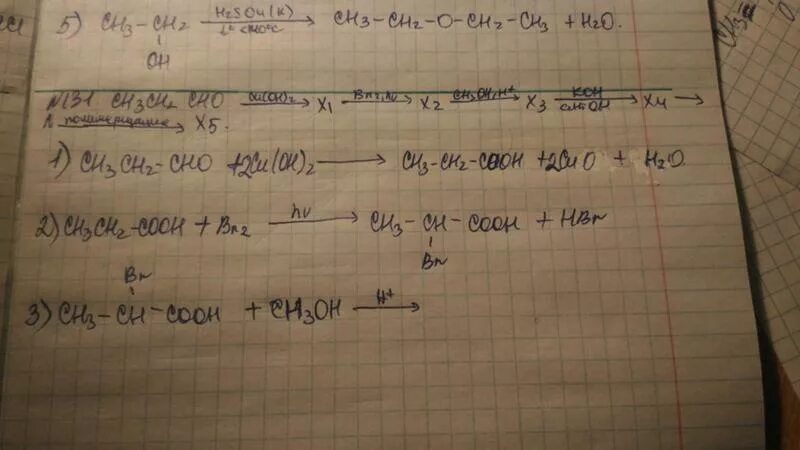 5) CH3-CH2 H2SO4(к) t° <140°C → CH3-CH2-O-CH2-CH3 + H2O.
OH
№131 CH3CH2 CHO Cu(OH)2 → X1 Br2, hν → X2 CH3OH, H+ → X3 KOH → X4 →
полимеризация → X5.
1) CH3CH2-CHO + 2Cu(OH)2 → CH3-CH2-COOH + 2CuO + H2O
2) CH3CH2-COOH + Br2 hν → CH3-CH-COOH + HBr
Br
Br
3) CH3-CH-COOH + CH3OH H+ →
CH3